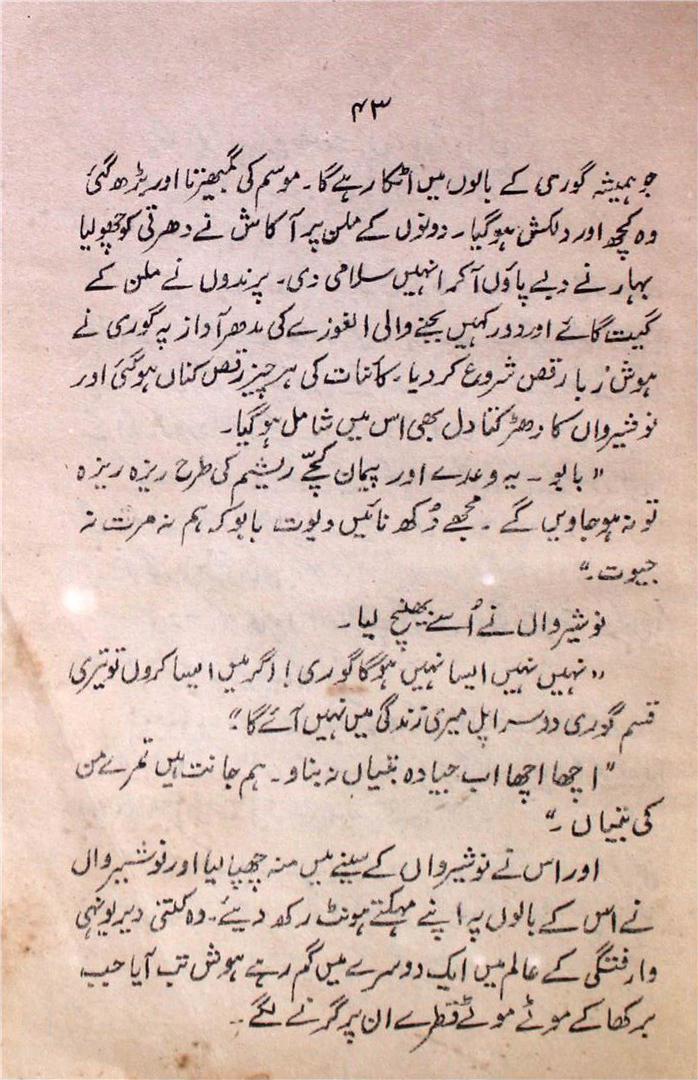 ۴۳
جو ہمیشہ گوری کے بالوں میں اٹکا رہے گا۔ موسم کی گمبھیرتا اور بڑھ گئی
وہ کچھ اور دلکش ہو گیا۔ دونوں کے ملن پر آکاش نے دھرتی کو چھو لیا
بہار نے دبے پاؤں آکر انہیں سلامی دی۔ پرندوں نے ملن کے
گیت گائے اور دور کہیں بجنے والی الغوزے کی مدھر آواز پہ گوری نے
ہوش رُبا رقص شروع کر دیا۔ کائنات کی ہر چیز رقص کناں ہو گئی اور
نوشیرواں کا دھڑکتا دل بھی اس میں شامل ہو گیا۔
"بابو۔ یہ وعدے اور پیمان کچّے ریشم کی طرح ریزہ ریزہ
تو نہ ہو جاویں گے۔ مجھے دُکھ نائیں دیوت بابو کہ ہم نہ مرت نہ
جیوت۔"
نوشیرواں نے اُسے بھینچ لیا۔
"نہیں نہیں ایسا نہیں ہو گا گوری! اگر میں ایسا کروں تو تیری
قسم گوری دوسرا پل میری زندگی میں نہیں آئے گا۔"
"اچھا اچھا اب جیادہ بتیاں نہ بناو۔ ہم جانت ہیں تمرے من
کی بتیاں۔"
اور اس نے نوشیرواں کے سینے میں منہ چھپا لیا اور نوشیرواں
نے اس کے بالوں پہ اپنے مہکتے ہونٹ رکھ دیئے۔ وہ کتنی دیر یونہی
وارفتگی کے عالم میں ایک دوسرے میں گم رہے ہوش تب آیا جب
برکھا کے موٹے موٹے قطرے ان پر گرنے لگے۔